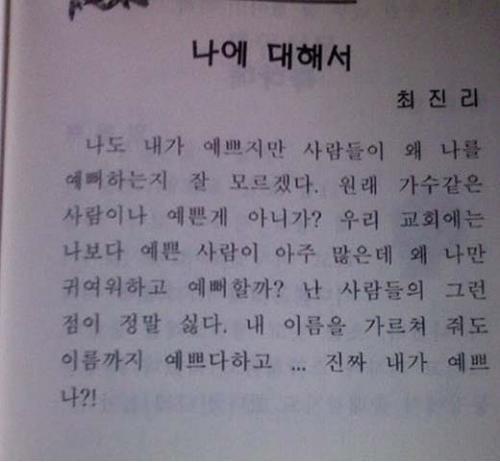 나에 대해서
최진리
나도 내가 예쁘지만 사람들이 왜 나를
예뻐하는지 잘 모르겠다. 원래 가수같은
사람이나 예쁜게 아니가? 우리 교회에는
나보다 예쁜 사람이 아주 많은데 왜 나만
귀여워하고 예뻐할까? 난 사람들의 그런
점이 정말 싫다. 내 이름을 가르쳐 줘도
이름까지 예쁘다하고 ... 진짜 내가 예쁘
나?!